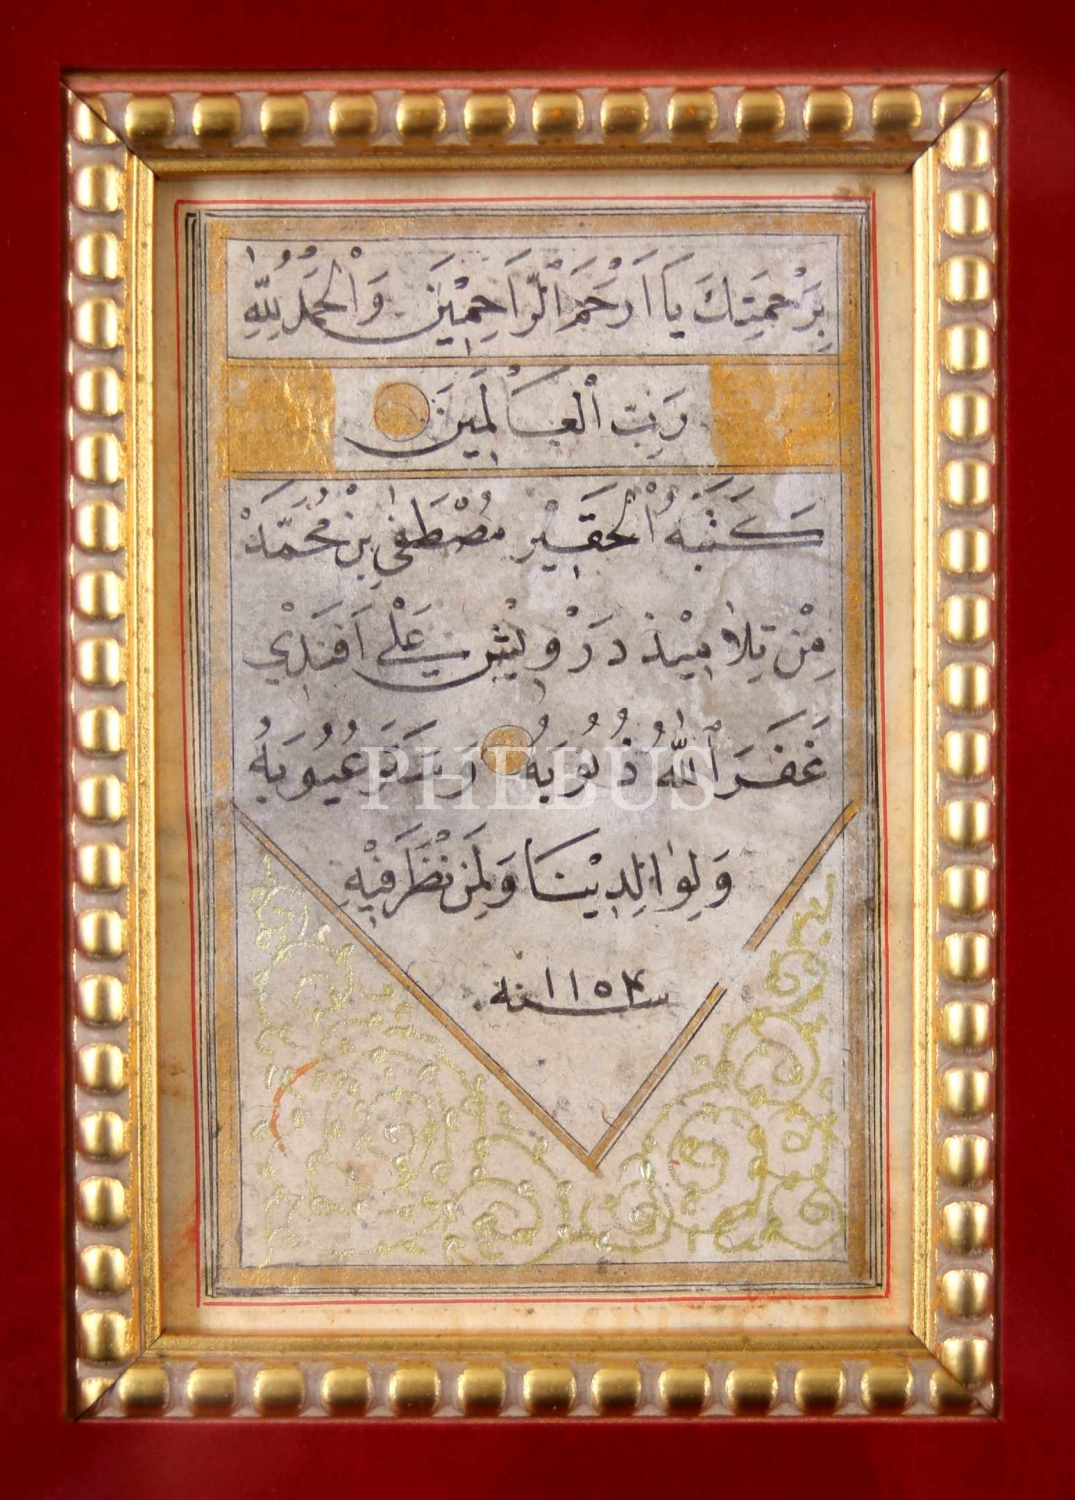 بِرَحْمَتِكَ يَا اَرْحَمَ الرَّاحِمِيْنَ وَالْحَمْدُ لِلّٰهِ
رَبِّ الْعَالَمِيْنَ
كَتَبَهُ الْحَقِيْر مُصْطَفٰى بِنْ مُحَمَّدْ
مِنْ تِلَامِيْذ دَرْوِيْش عَلِي اَفَنْدِي
غَفَرَ اللّٰهُ ذُنُوبَهُ وَسَتَرَ عُيُوبَهُ
وَلِوَالِدِيْنَا وَلِمَنْ نَظَرَ فِيْهِ
سنه ١١٥٤
PHEBUS